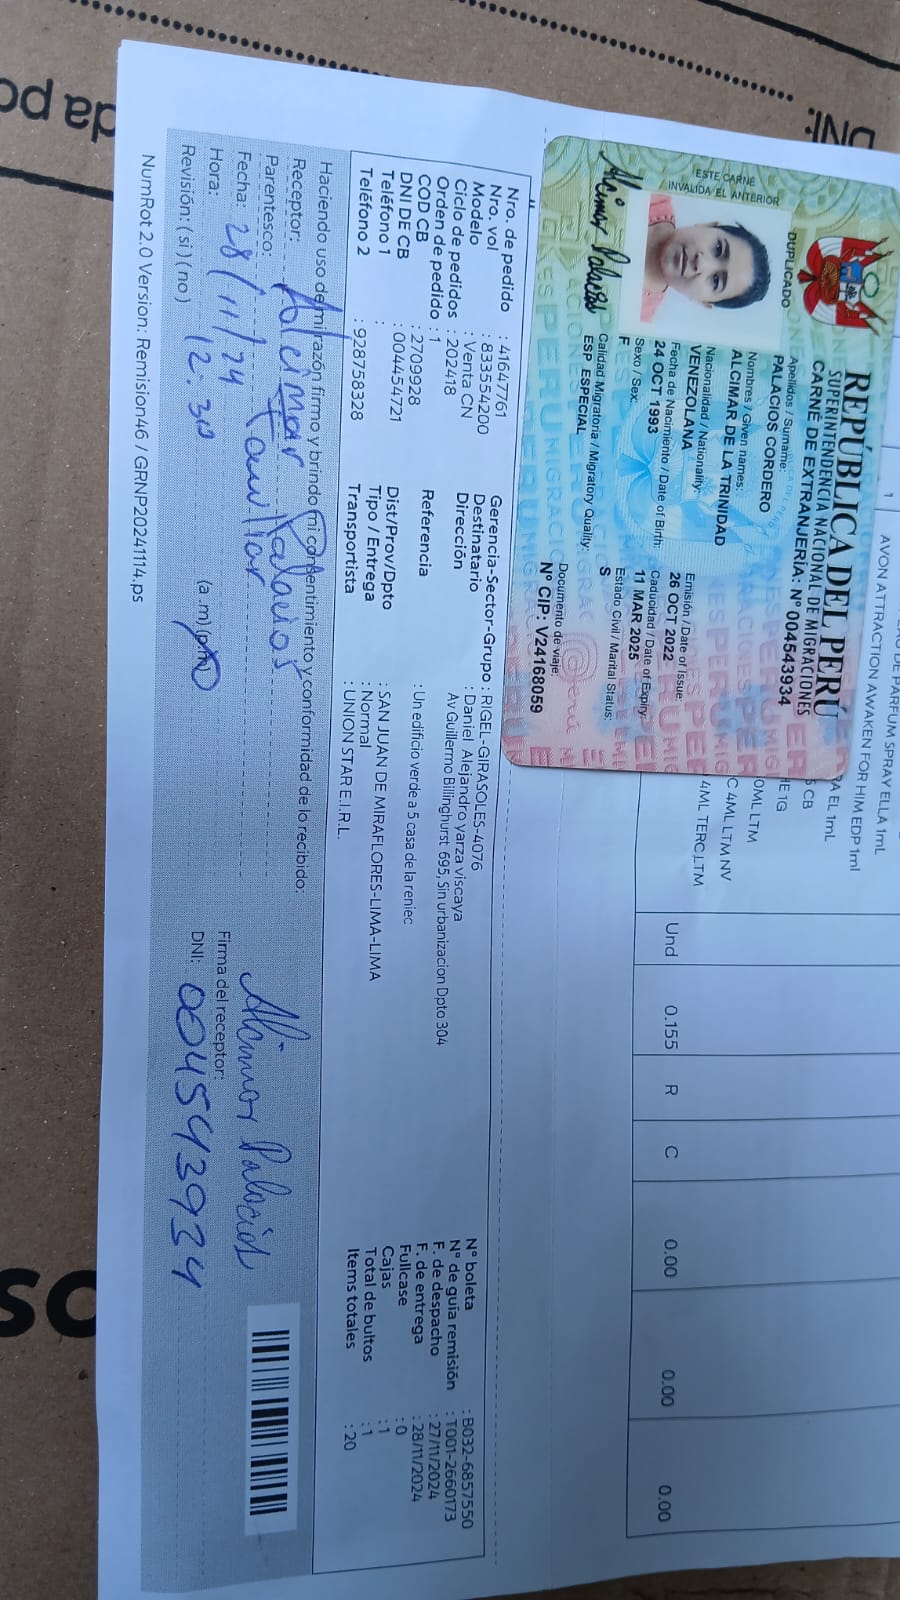 da po
DNI:
os
REPÚBLICA DEL PERÚ
SUPERINTENDENCIA NACIONAL DE MIGRACIONES
CARNÉ DE EXTRANJERÍA: N° 004543934
DUPLICADO
ESTE CARNÉ
INVALIDA EL ANTERIOR
Apellidos / Surname:
PALACIOS CORDERO
Nombres / Given names:
ALCIMAR DE LA TRINIDAD
Nacionalidad / Nationality:
VENEZOLANA
Fecha de Nacimiento / Date of Birth:
24 OCT 1993
Sexo / Sex:
F
Calidad Migratoria / Migratory Quality:
ESP ESPECIAL
Emisión / Date of Issue:
26 OCT 2022
Caducidad / Date of Expiry:
11 MAR 2025
Estado Civil / Marital Status:
S
Documento de viaje:
N° CIP: V24168059
Alcimar Palacios
DE PARFUM SPRAY ELLA 1mL
1 AVON ATTRACTION AWAKEN FOR HIM EDP 1ml
RA EL 1mL
S CB
HE 1G
0ML LTM
C 4ML LTM NV
4ML TERC LTM
Und 0.155 R C 0.00 0.00 0.00
Nro. de pedido : 41647761
Nro. vol : 833554200
Modelo : Venta CN
Ciclo de pedidos : 202418
Orden de pedido : 1
COD CB : 2709928
DNI DE CB : 004454721
Teléfono 1 :
Teléfono 2 : 928758328
Gerencia-Sector-Grupo : RIGEL-GIRASOLES-4076
Destinatario : Daniel Alejandro yarza viscaya
Dirección Av Guillermo Billinghurst 695, Sin urbanizacion Dpto 304
Referencia : Un edificio verde a 5 casa de la reniec
Dist/Prov/Dpto : SAN JUAN DE MIRAFLORES-LIMA-LIMA
Tipo / Entrega : Normal
Transportista : UNION STAR E.I.R.L.
N° boleta : B032-6857550
N° de guía remisión : T001-2660173
F. de despacho : 27/11/2024
F. de entrega : 28/11/2024
Fullcase : 0
Cajas : 1
Total de bultos : 1
Items totales : 20
Haciendo uso de mi razón firmo y brindo mi consentimiento y conformidad de lo recibido:
Receptor: Alcimar Palacios
Parentesco: Familiar
Fecha: 28/11/24
Hora: 12:30 (a.m) (p.m)
Revisión: ( si ) ( no )
Alcimar Palacios
Firma del receptor:
DNI: 004543934
NumRot 2.0 Version: Remision46 / GRNP20241114.ps